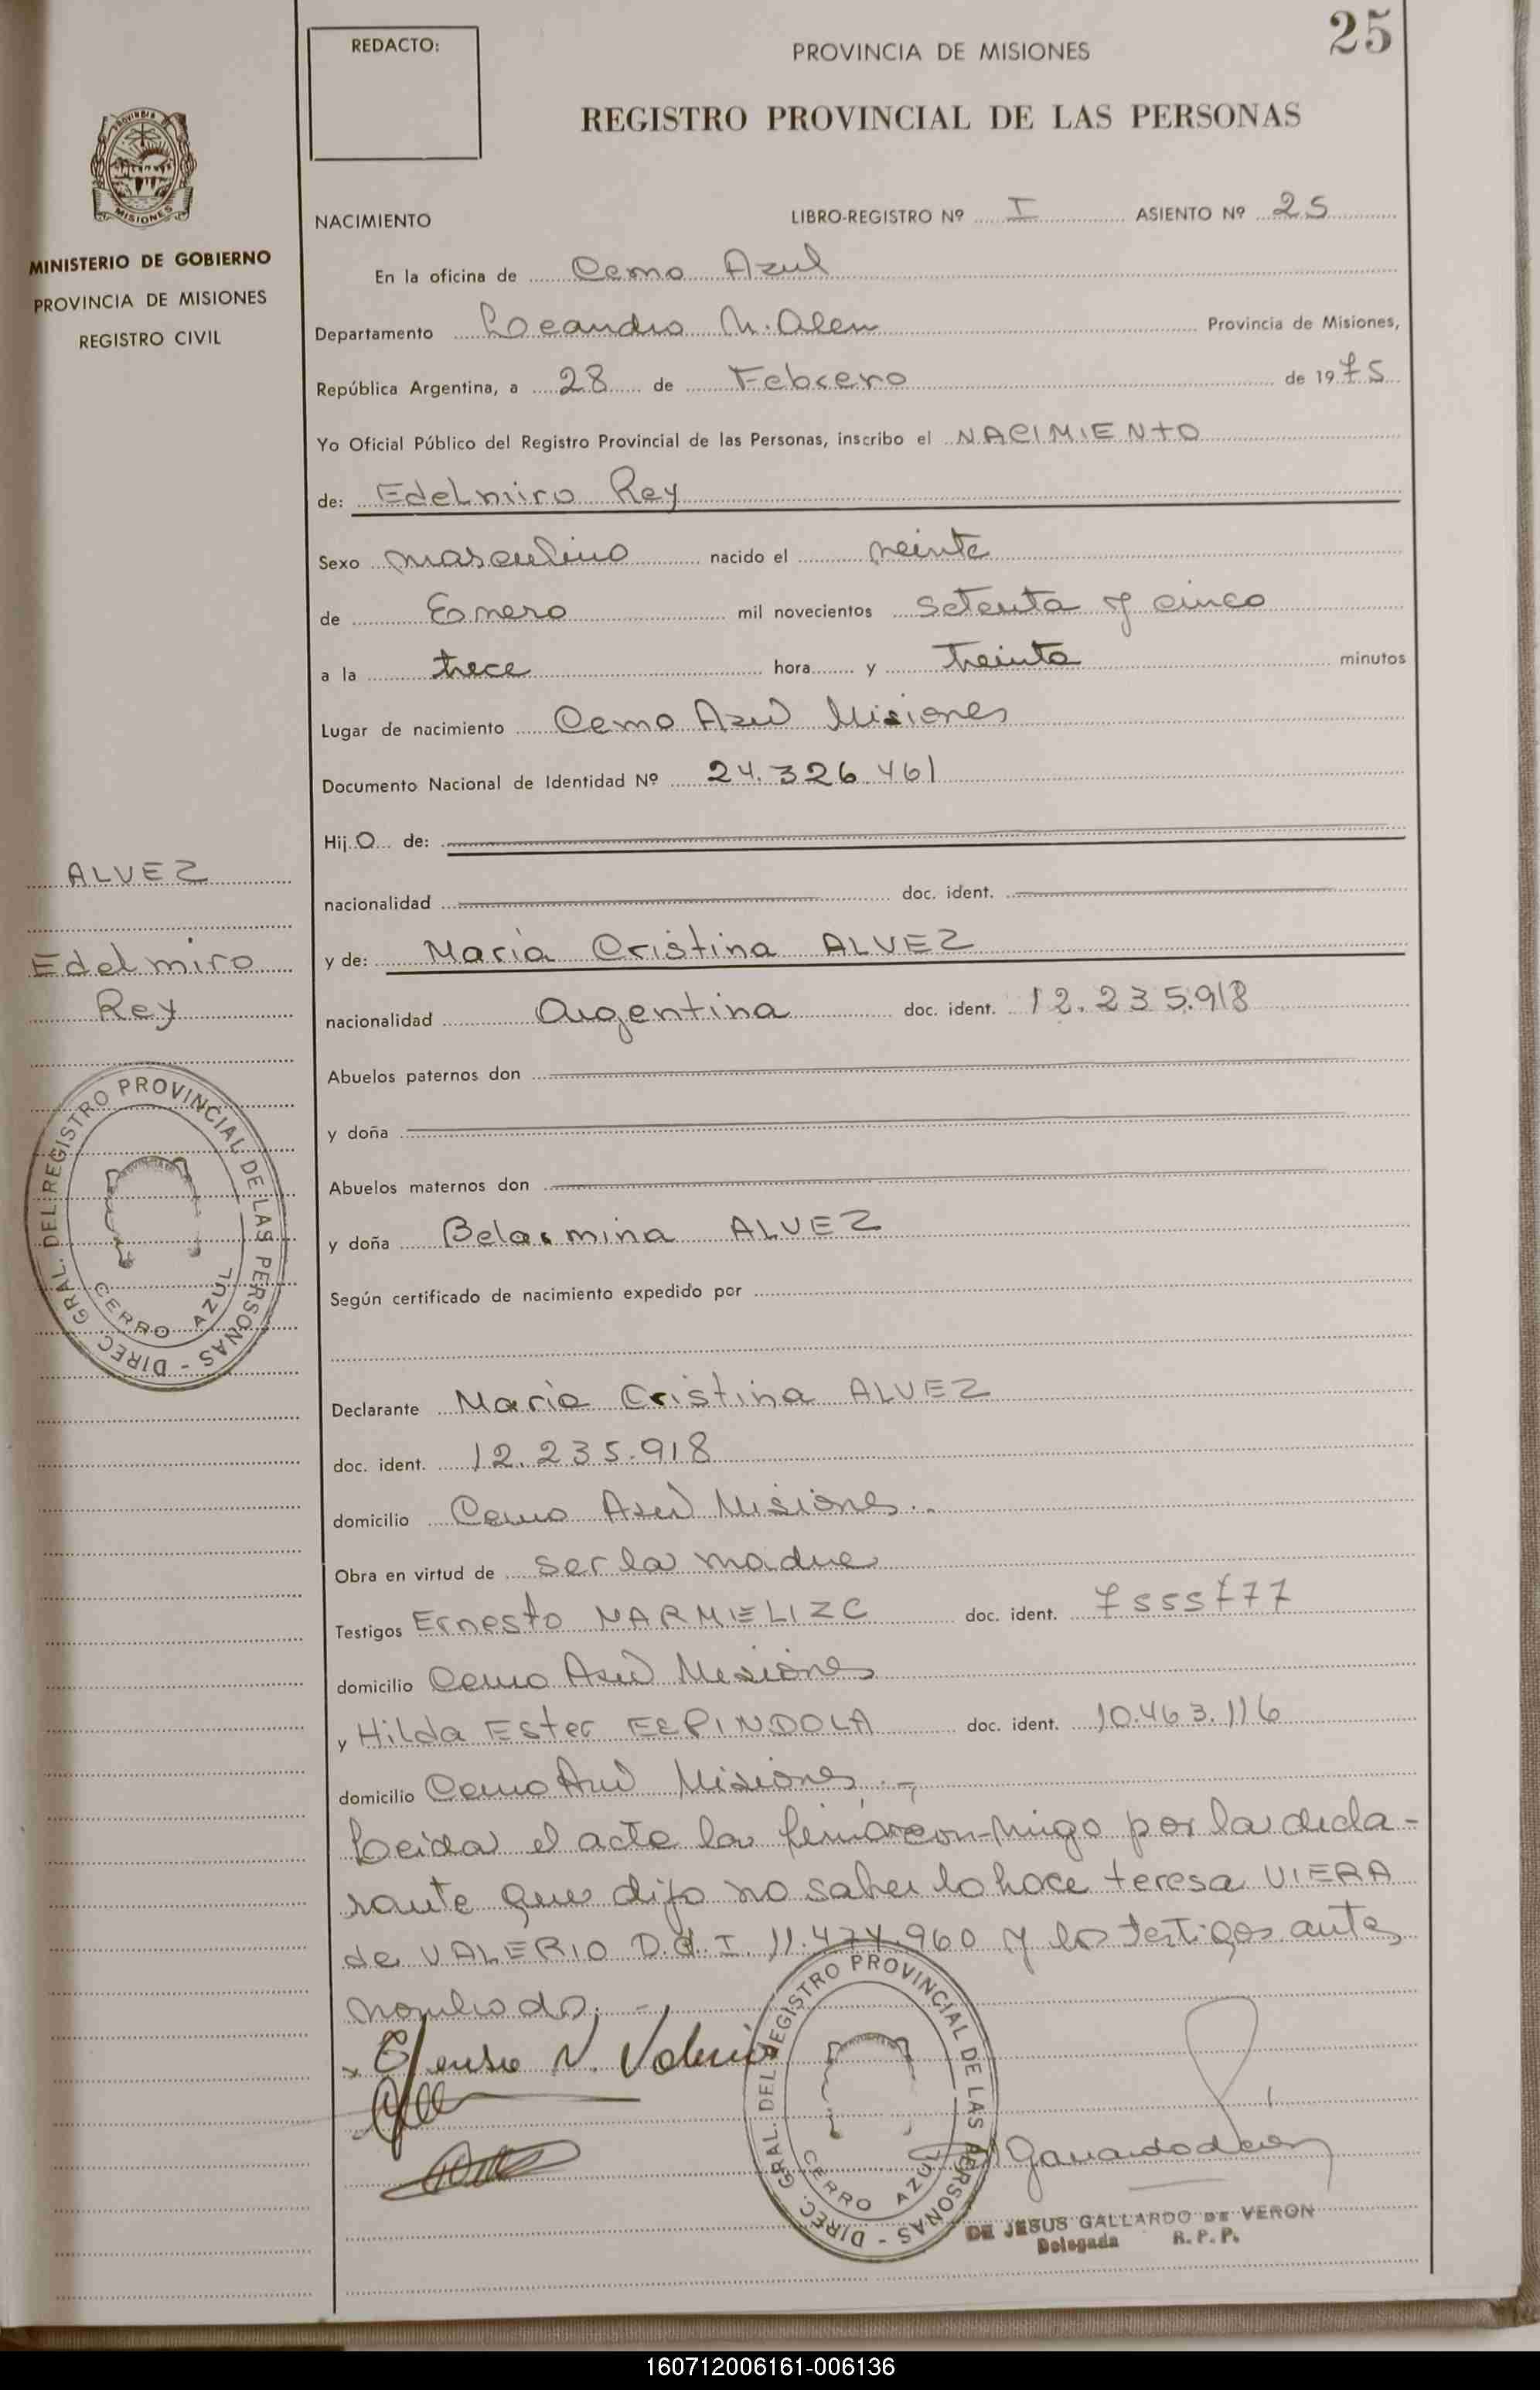 25
REDACTO:
PROVINCIA DE MISIONES
REGISTRO PROVINCIAL DE LAS PERSONAS
PROVINCIA DE
MISIONES
MINISTERIO DE GOBIERNO
PROVINCIA DE MISIONES
REGISTRO CIVIL
NACIMIENTO LIBRO-REGISTRO Nº I ASIENTO Nº 25
En la oficina de Cerro Azul
Departamento Leandro N. Alem Provincia de Misiones,
República Argentina, a 28 de Febrero de 1975
Yo Oficial Público del Registro Provincial de las Personas, inscribo el NACIMIENTO
de: Edelmiro Rey
Sexo masculino nacido el veinte
de Enero mil novecientos setenta y cinco
a la trece hora y treinta minutos
Lugar de nacimiento Cerro Azul Misiones
Documento Nacional de Identidad Nº 24.326.461
Hijo de:
nacionalidad doc. ident.
y de: María Cristina ALVEZ
nacionalidad Argentina doc. ident. 12.235.918
Abuelos paternos don
y doña
Abuelos maternos don
y doña Belarmina ALVEZ
Según certificado de nacimiento expedido por
Declarante María Cristina ALVEZ
doc. ident. 12.235.918
domicilio Cerro Azul Misiones
Obra en virtud de ser la madre
Testigos Ernesto doc. ident. 7555777
domicilio Cerro Azul Misiones
y Hilda Ester ESPINDOLA doc. ident. 10.463.116
domicilio Cerro Azul Misiones.-
Leida el acta la con-migo por la decla-
rante que dijo no saber lo hace teresa VIERA
de VALERIO D.d.I. 11.474.960 y los testigos antes
nombrado.-
ALVEZ
Edelmiro
Rey
DIREC. GRAL. DEL REGISTRO PROVINCIAL DE LAS PERSONAS -
CERRO AZUL
DIREC. GRAL. DEL REGISTRO PROVINCIAL DE LAS PERSONAS -
CERRO AZUL
DE JESUS GALLARDO DE VERON
Delegada R. P. P.
160712006161-006136